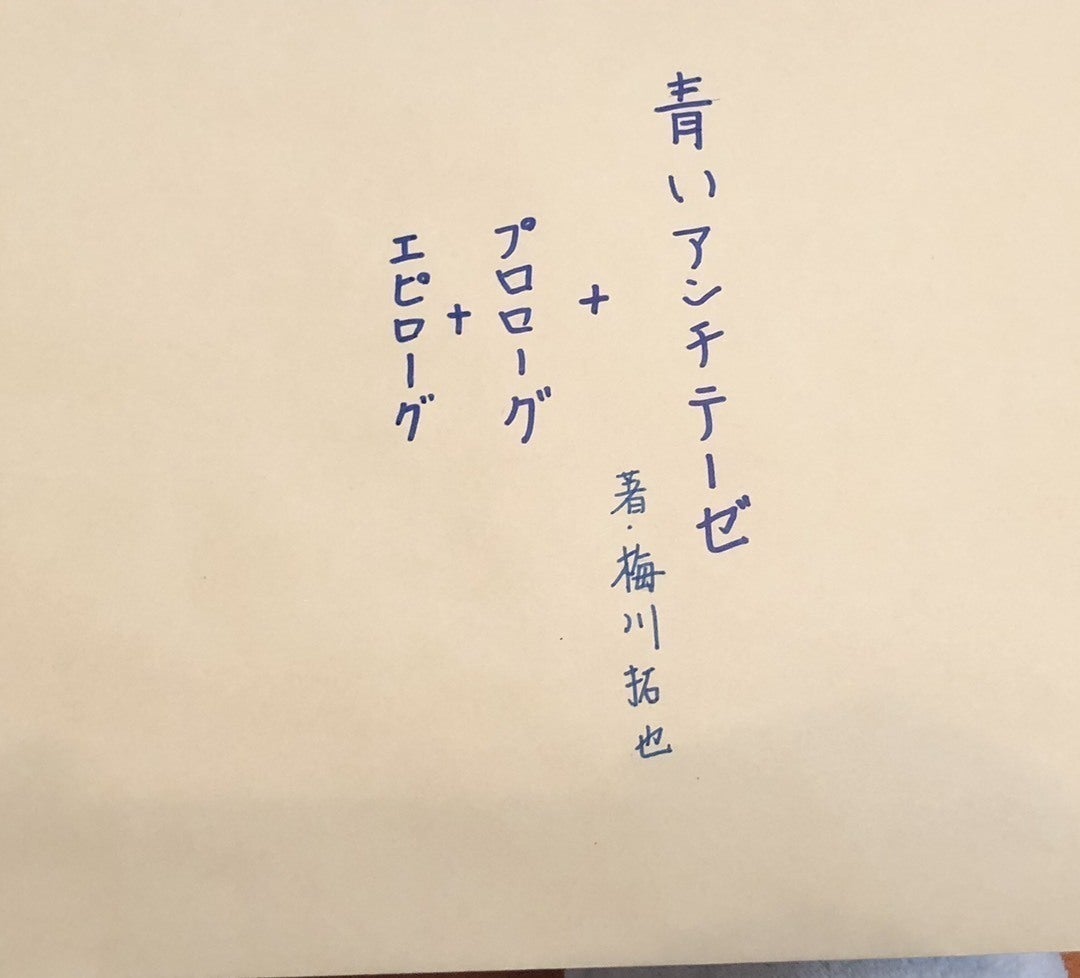 青いアンチテーゼ
著・梅川拓也
+
プロローグ
+
エピローグ